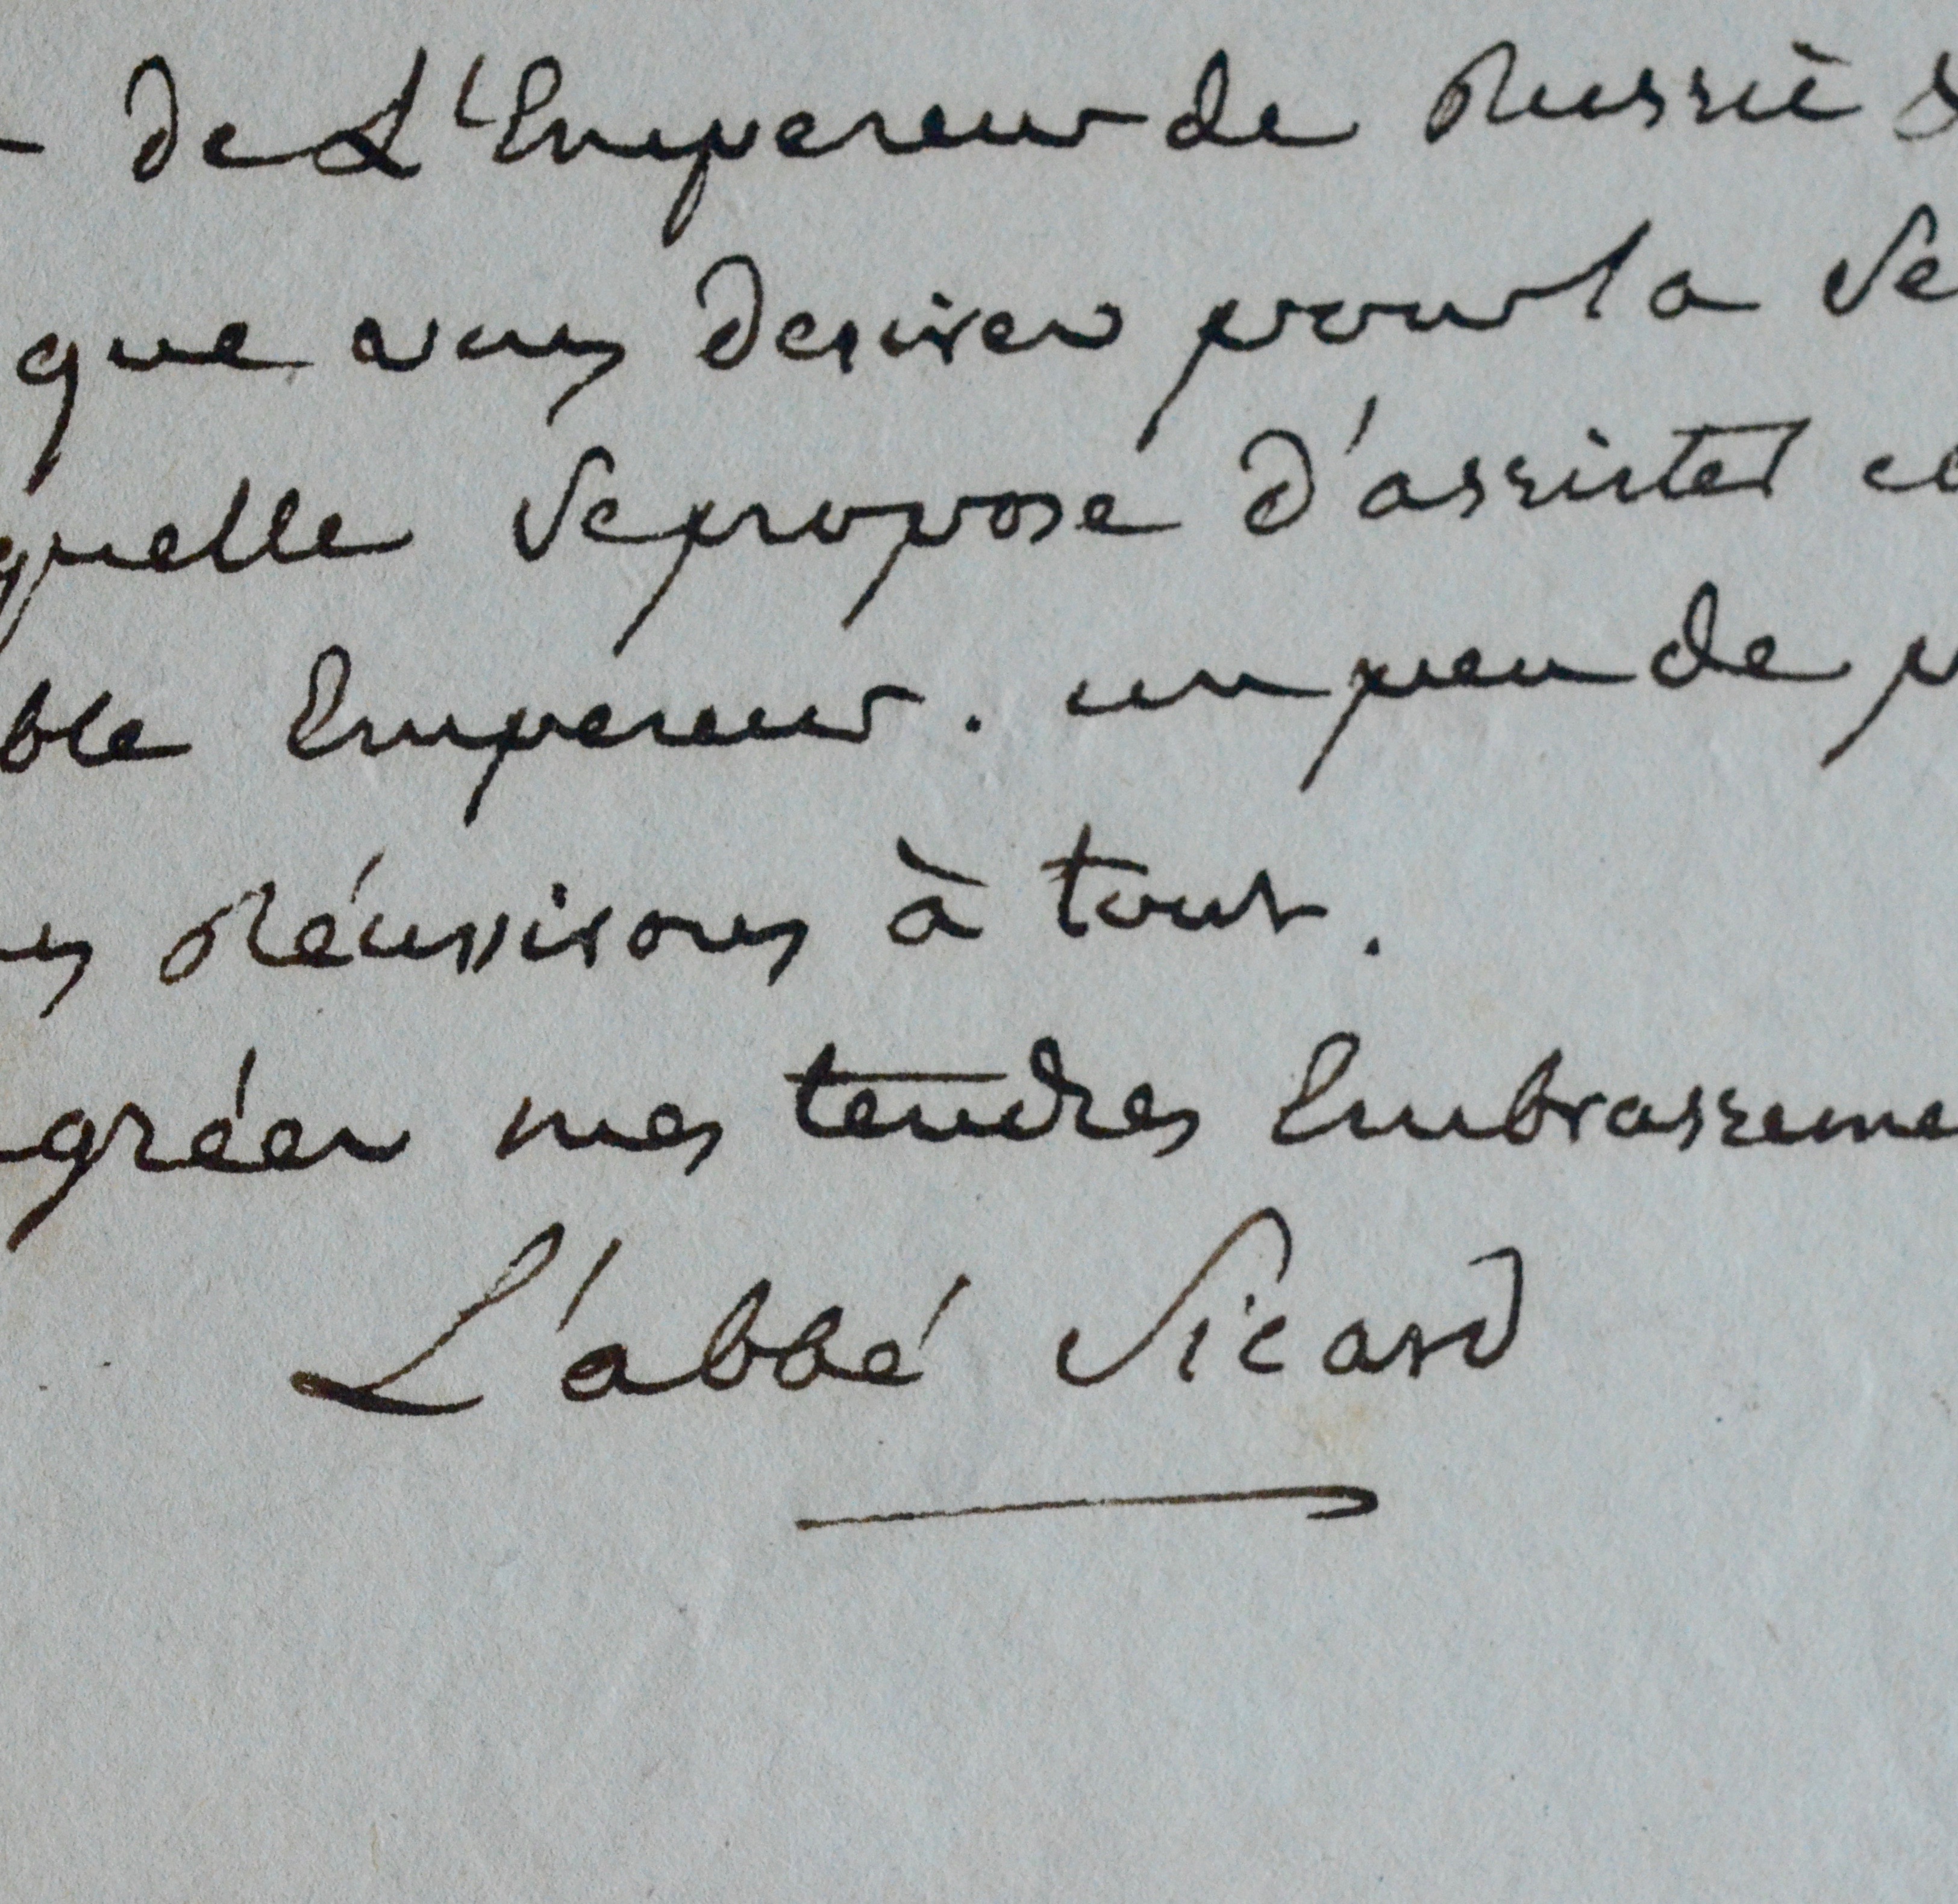 de L'Empereur de Russie &
que vous desirez pour la Se
quelle se propose d'assister ce
ble Empereur. un peu de p
réussirons à tout.
gréez mes tendres Embrasseme
L'abbé Sicard